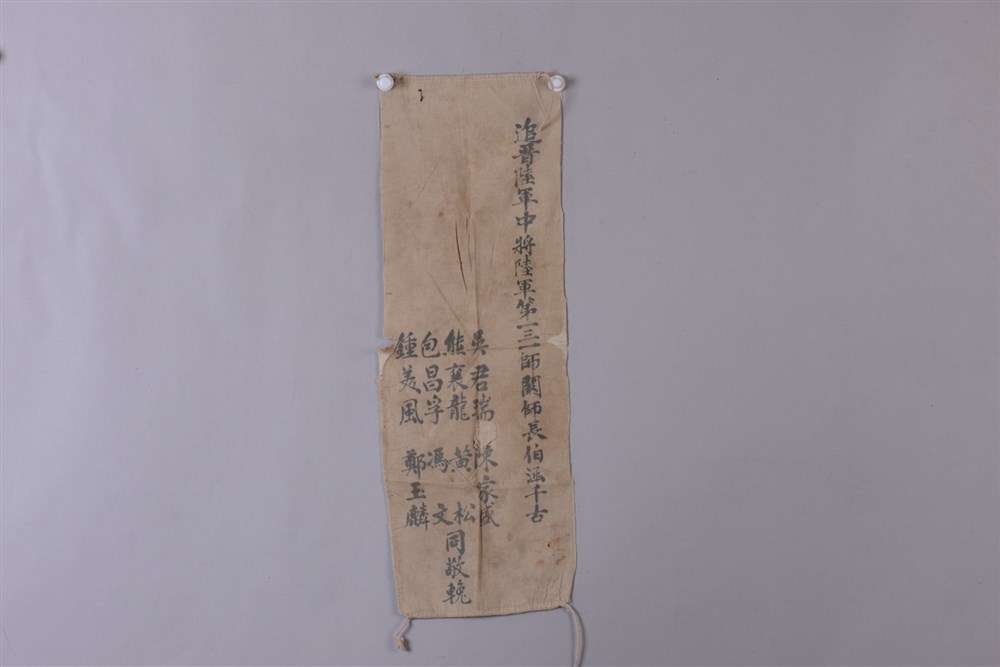 追晉陸軍中將陸軍第一三一師闞師長伯涵千古
吳君瑞 陳家
熊襄龍 黃松
包昌孚 馮文
鍾美風 鄭玉麟
同敬輓